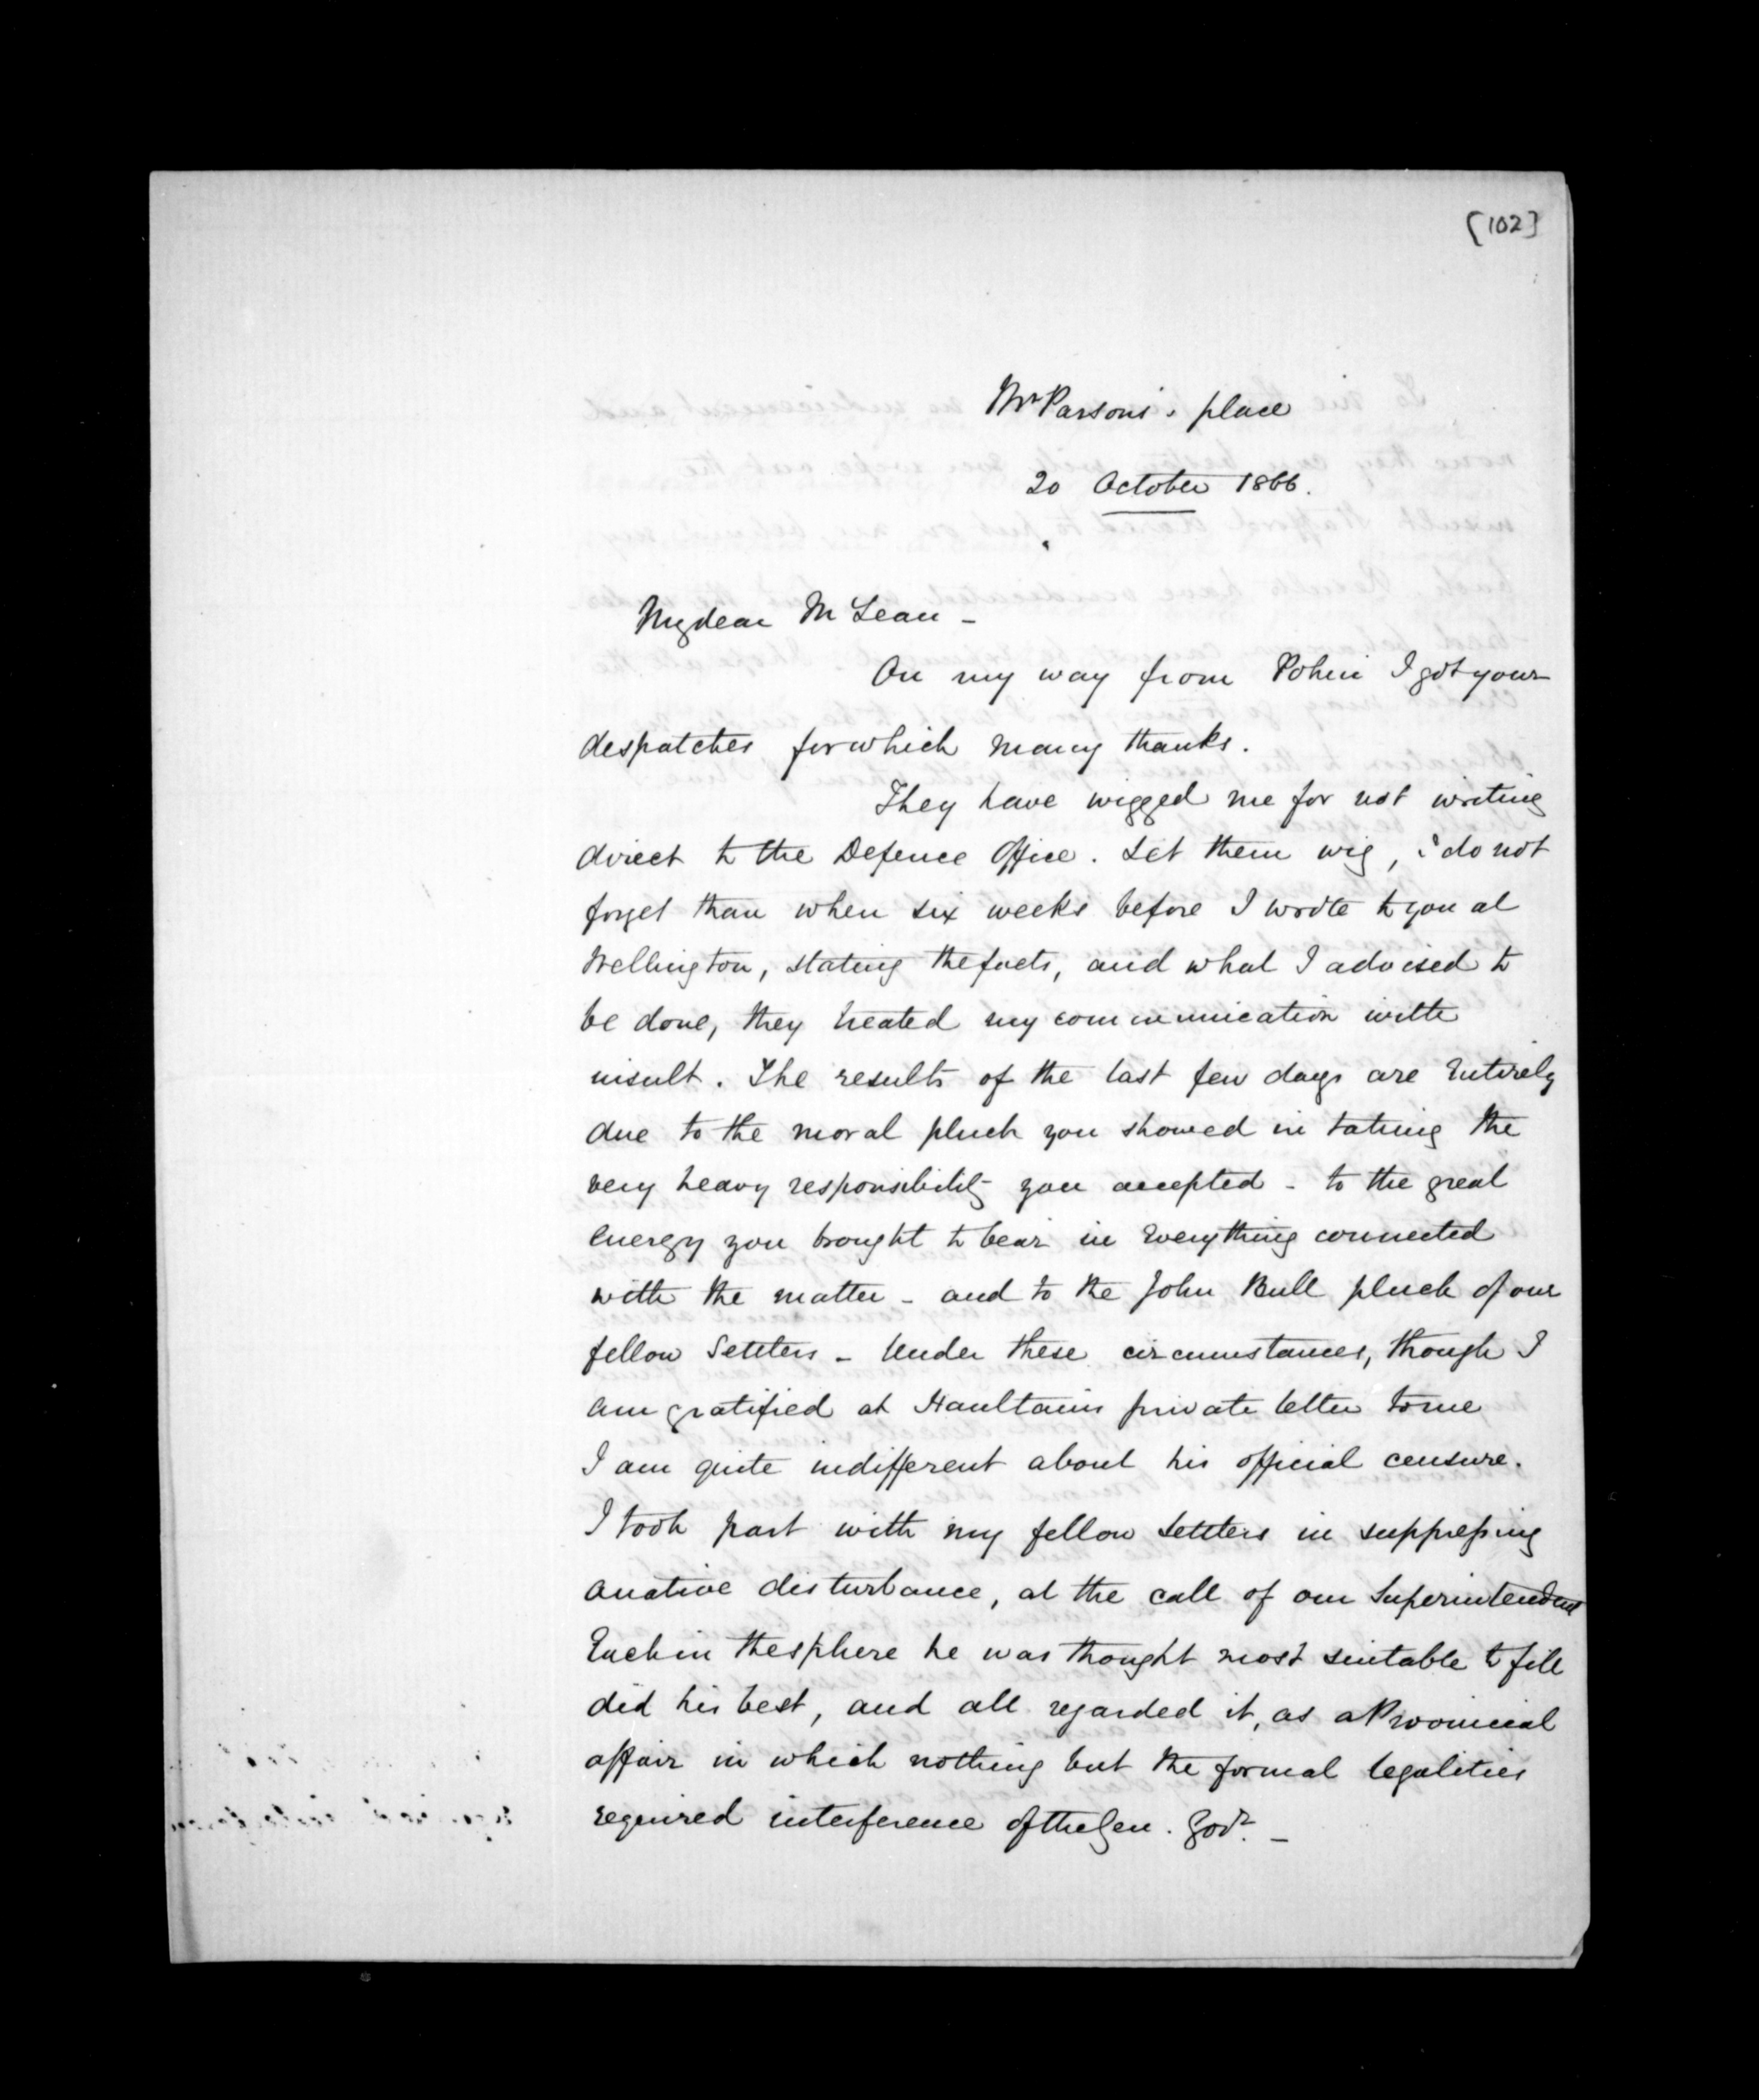 [102]
Mr Parsons' place
20 October 1866.
My dear McLean -
On my way from Pohui I got your
despatches for which many thanks.
They have wigged me for not writing
direct to the Defence Office. Let them wig, i do not
forget than when six weeks before I wrote to you at
Wellington, stating the facts, and what I advised to
be done, they treated my communication with
insult. The results of the last few days are entirely
due to the moral pluck you showed in taking the
very heavy responsibility you accepted - to the great
energy you brought to bear in everything connected
with the matter - and to the John Bull pluck of our
fellow Settlers - Under these circumstances, though I
am gratified at Haultains private letter to me
I am quite indifferent about his official censure.
I took part with my fellow settlers in suppressing
a native disturbance, at the call of our Superintendent
Each in the sphere he was thought most suitable to fill
did his best, and all regarded it, as a Provincial
affair in which nothing but the formal legalities
required interference of the Gen. Govt. -